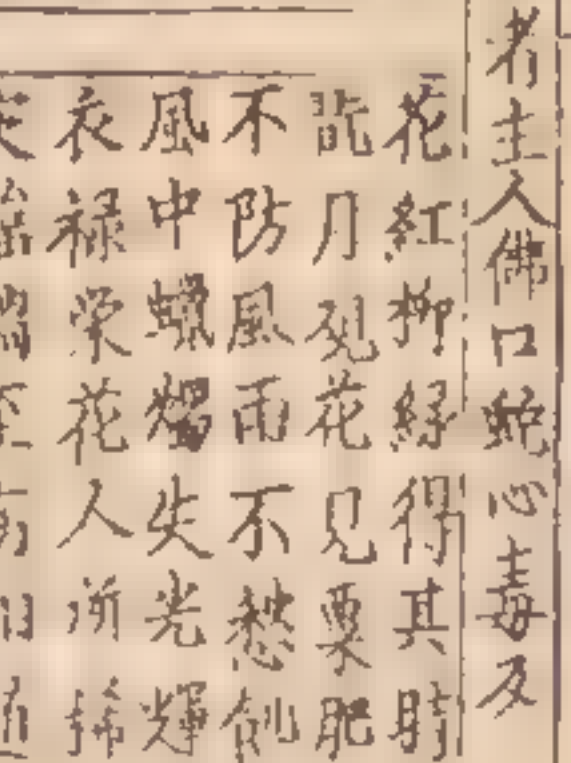 者主人佛口蛇心毒及
花紅柳緑得其時
訛月观花見栗肥
不防風雨不愁創
風中蠟燭失光輝
衣禄荣花人所稀